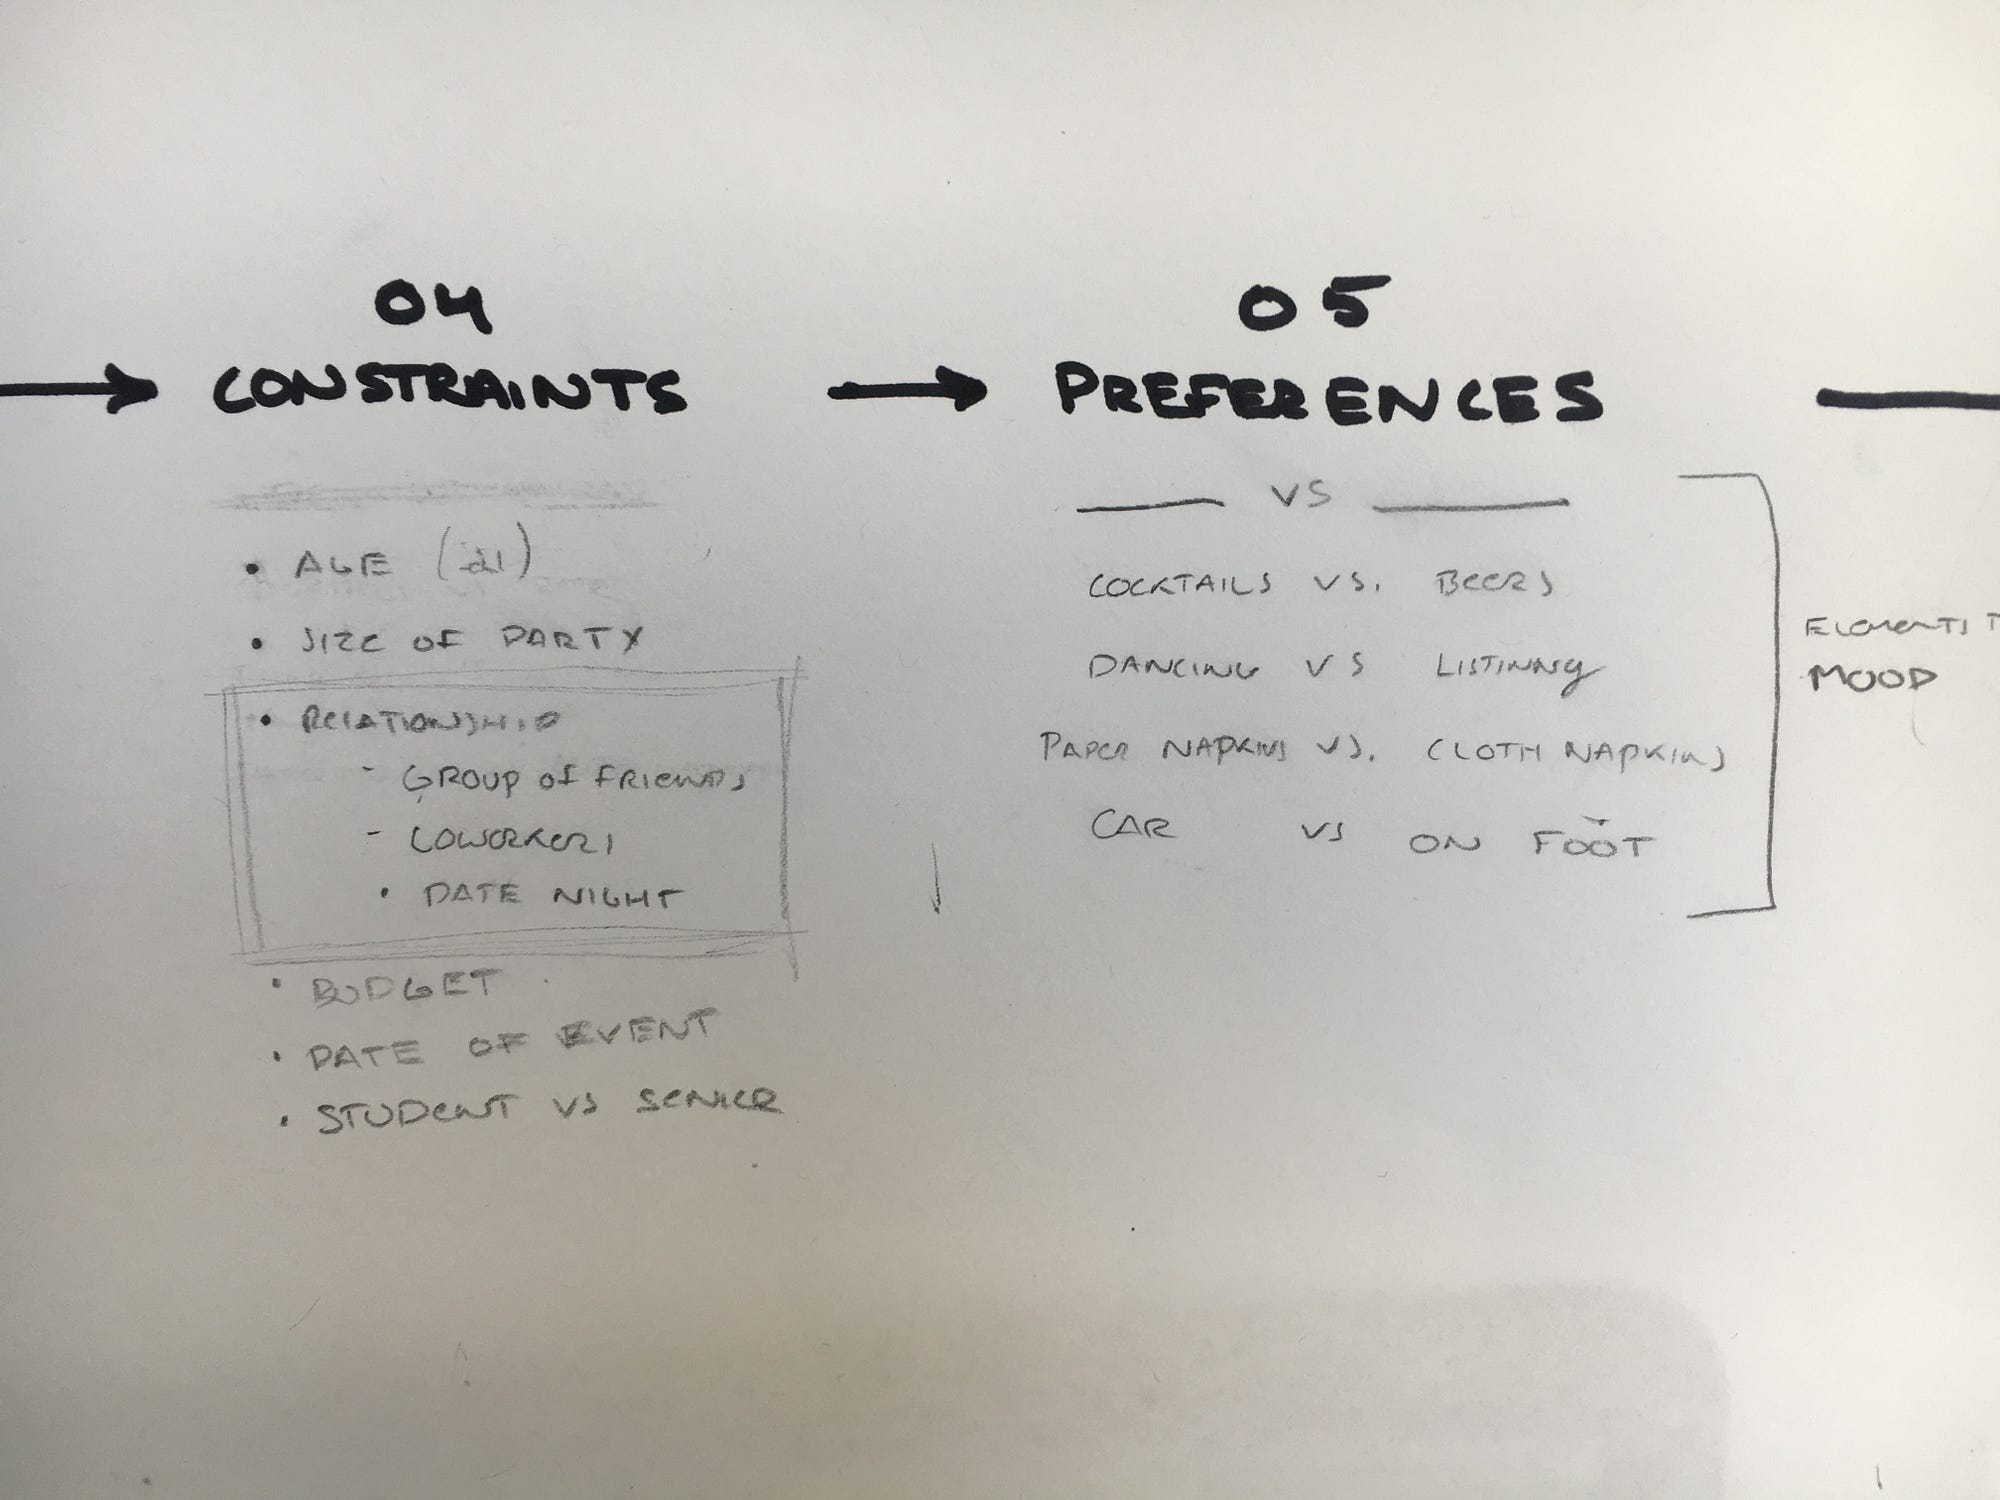 04
CONSTRAINTS
• AGE (21)
• SIZE OF PARTY
• RELATIONSHIP
- GROUP OF FRIENDS
- COWORKERS
• DATE NIGHT
• BUDGET
• DATE OF EVENT
• STUDENT VS SENIOR
05
PREFERENCES
VS
COCKTAILS VS. BEERS
DANCING VS LISTINNG
PAPER NAPKINS VS. CLOTH NAPKINS
CAR VS ON FOOT
ELEMENTS
MOOD